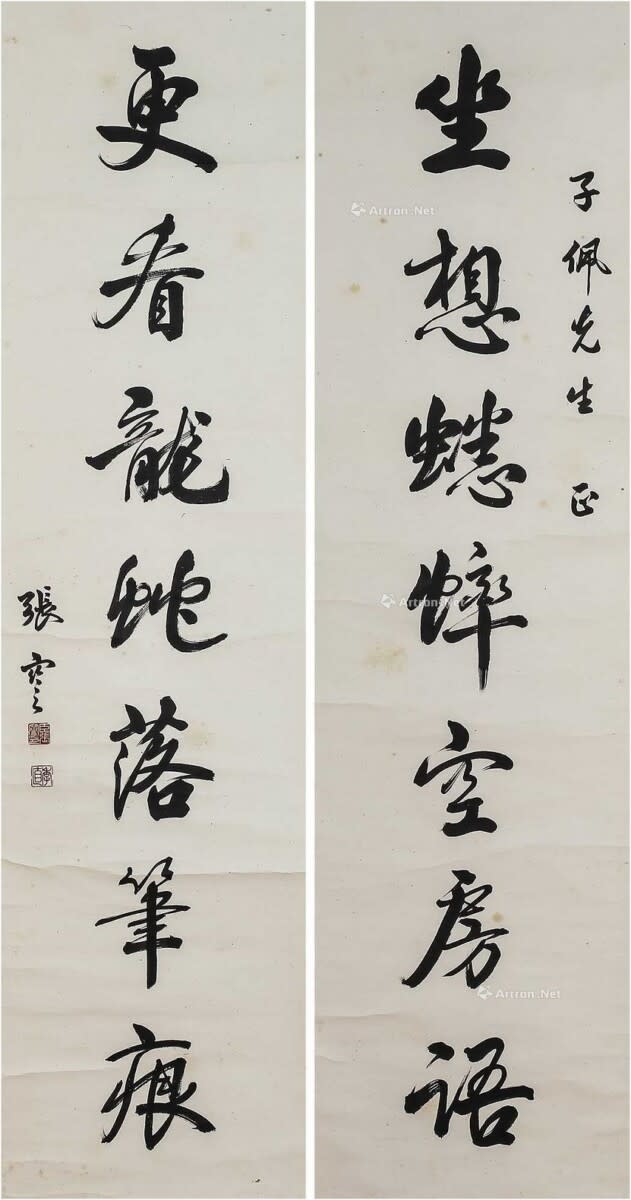 子佩先生 正
坐想蟋蟀空房語
更看龍蛇落筆痕
張謇
Artron.Net
Artron.Net
Artron.Net